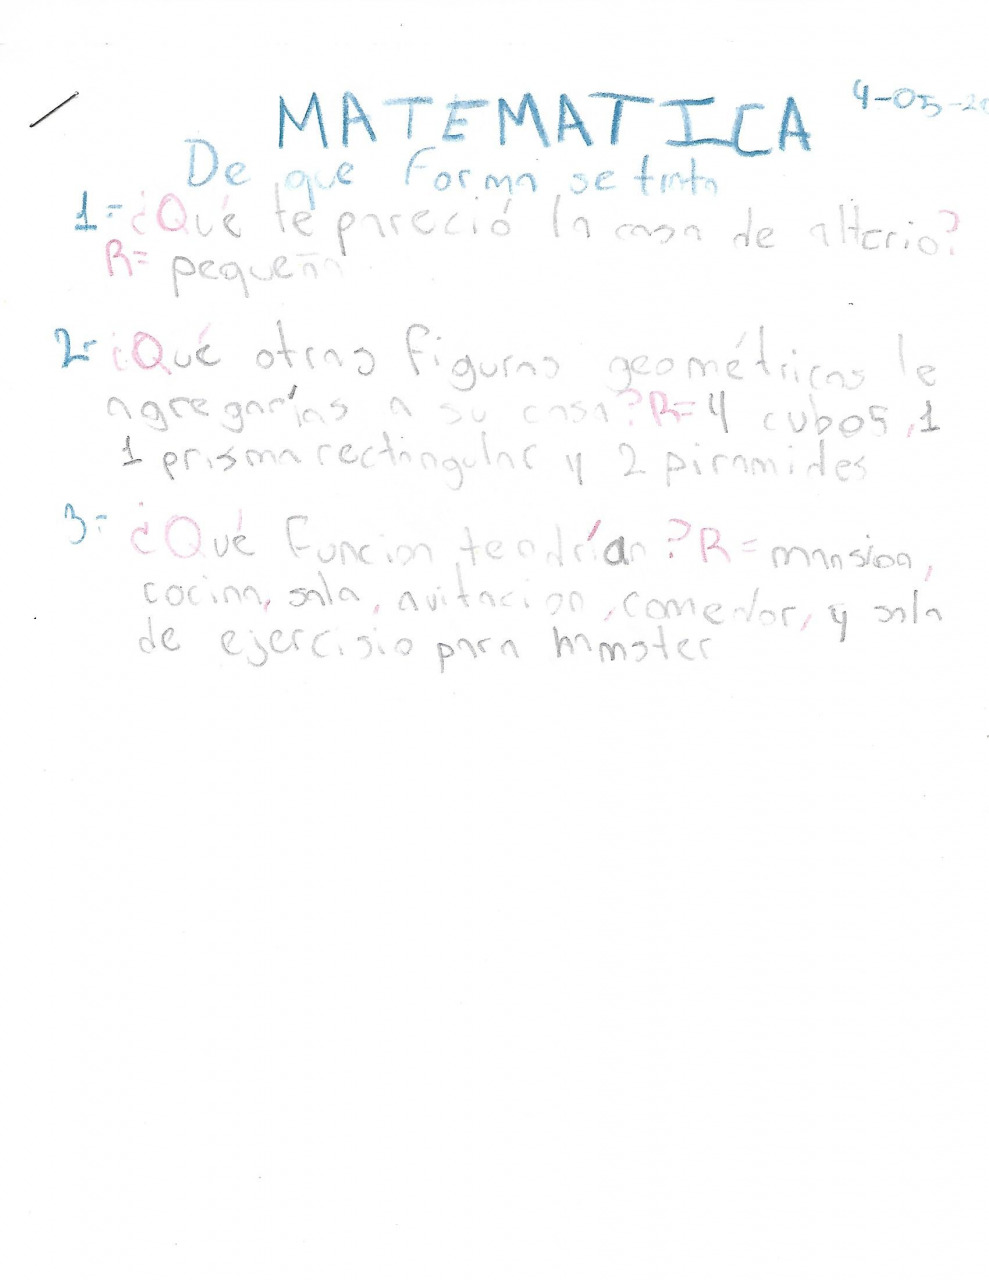 MATEMATICA 4-05-20
De que Forma se trata
1=¿Qué te pareció la casa de alterio?
R= pequeña
2- ¿Qué otras figuras geométricas le
agregarías a su casa? R=4 cubos, 1
1 prisma rectangular y 2 piramides
3- ¿Qué Funcion tendrían? R= mansion,
cocina, sala, avitacion, comedor, y sala
de ejercisio para hamster